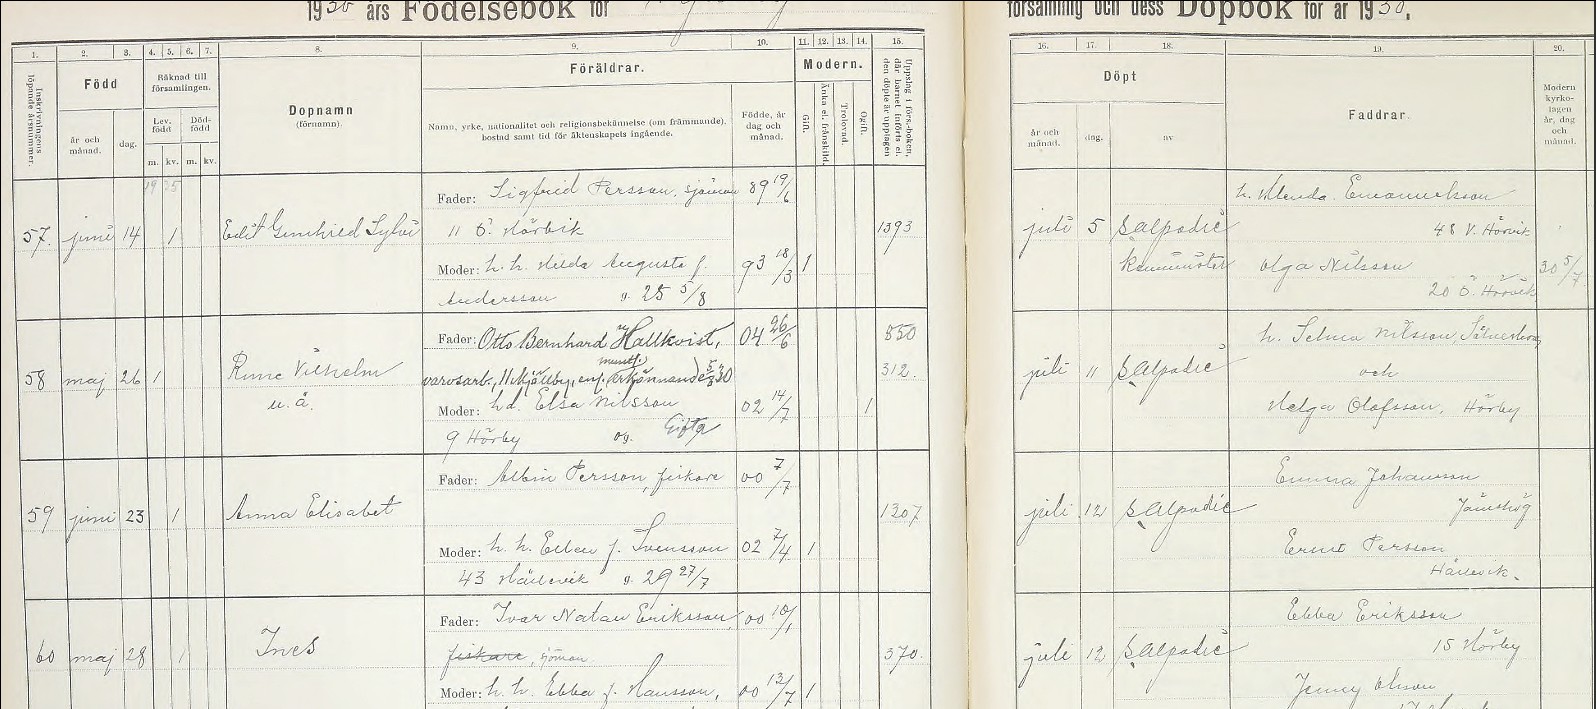 1930 års Födelsebok för
församling och dess Dopbok för år 1930.
1. 2. 3. 4. 5. 6. 7. 8. 9. 10. 11. 12. 13. 14. 15. 16. 17. 18. 19. 20.
Inskrivningens löpande årsnummer.
Född
år och månad.
dag.
Räknad till församlingen.
Lev. född
Död- född
m. kv. m. kv.
Dopnamn
(förnamn).
Föräldrar.
Namn, yrke, nationalitet och religionsbekännelse (om främmande).
bostad samt tid för äktenskapets ingående.
Födde, år dag och månad.
Modern.
Gift.
Änka el. frånskild.
Trolovad.
Ogift.
Uppslag i förs.-boken, där barnet införts el. den döpte är upptagen
Döpt
år och månad.
dag.
av
Faddrar.
Modern kyrkotagen år, dag och månad.
1925
57. juni 14 1 Edit Gunhild Sylvi
Fader: Sigfrid Persson, sjöman 89 19/6
11 Ö. Hörvik
Moder: h. h. Hilda Augusta f. 93 18/3 1
Andersson g. 25 5/8
1393
juli 5 S Alpadie
komminister
h. Alenda Emanuelsson
48 V. Hörvik
Olga Nilsson
20 Ö. Hörvik
30 5/7
58 maj 26 1 Rune Vilhelm
u. ä.
Fader: Otto Bernhard Hallkvist, 04 26/6
varvsarb., 11 Mjällby, enl. muntl. erkännande 5/3 30
Moder: hd. Elsa Nilsson 02 14/7 1
9 Hörby og. Gifta
850
312.
juli 11 S Alpadie
h. Selma Nilsson, Sölvesborg
och
Helga Olofsson, Hörby
59 juni 23 1 Anna Elisabet
Fader: Albin Persson, fiskare 00 7/7
Moder: h. h. Ellen f. Svensson 02 7/4 1
43 Hällevik g. 29 27/7
1207
juli 12 S Alpadie
Emma Johansson
Jämshög
Ernst Persson
Hällevik.
60 maj 28 1 Ines
Fader: Ivar Natan Eriksson, 00 10/1
fiskare, sjöman
Moder: h. h. Ebba f. Hansson, 00 13/7 1
370.
juli 12 S Alpadie
Ebba Eriksson
15 Hörby
Jenny Olsson